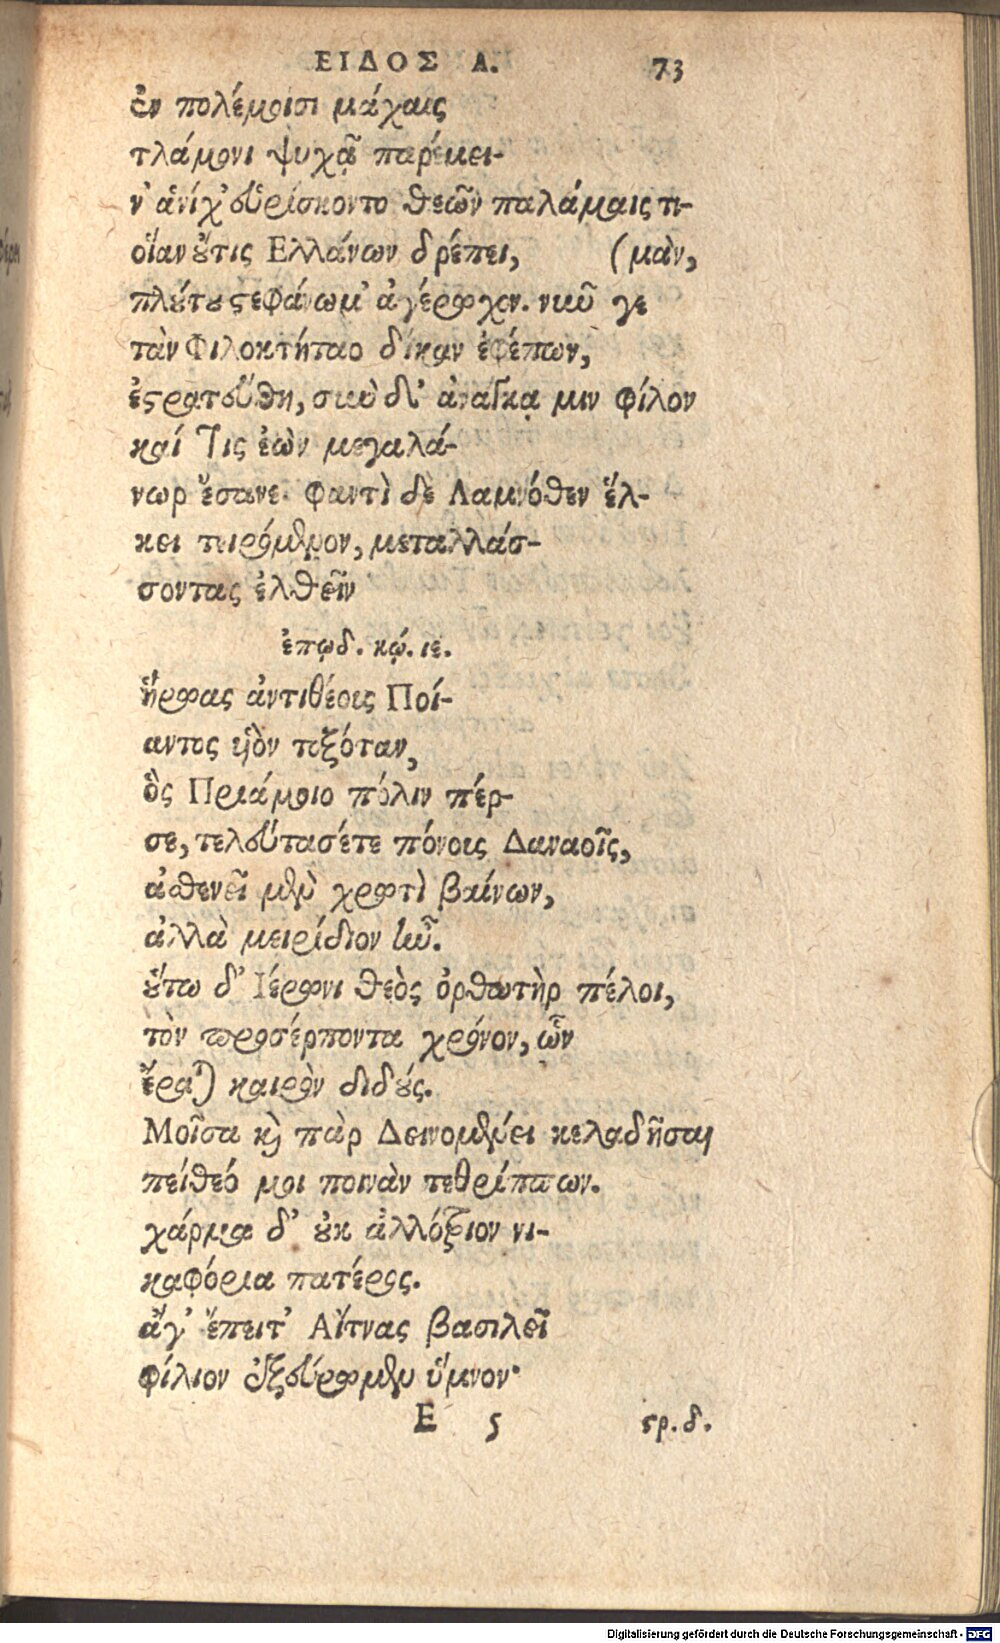 ΕΙΔΟΣ Α. 73
ἐν πολέμοισι μάχαις
τλάμονι ψυχᾷ παρέμει-
ν' ἁνίχ' εὑρίσκοντο θεῶν παλάμαις τι-
οἵαν οὔτις Ἑλλάνων δρέπει, (μὰν,
πλούτου στεφάνωμ' ἀγέρωχον. νῦν γε
τὰν Φιλοκτήταο δίκαν ἐφέπων,
ἐστρατεύθη, σὺν δ' ἀνάγκᾳ μιν φίλον
καί τις ἐὼν μεγαλά-
νωρ ἔσανε. Φαντὶ δὲ Λαμνόθεν ἕλ-
κει τειρόμενον, μεταλλάσ-
σοντας ἐλθεῖν
ἐπῳδ. κώ. ιε.
ἥρωας ἀντιθέοις Ποί-
αντος υἱὸν τοξόταν,
ὃς Πριάμοιο πόλιν πέρ-
σε, τελεύτασέτε πόνοις Δαναοῖς,
ἀσθενεῖ μὲν χρωτὶ βαίνων,
ἀλλὰ μοιρίδιον ἦν.
οὕτω δ' Ἱέρωνι θεὸς ὀρθωτὴρ πέλοι,
τὸν προσέρποντα χρόνον, ὧν
ἔραται καιρὸν διδούς.
Μοῖσα καὶ πὰρ Δεινομένει κελαδῆσαι
πείθεό μοι ποινὰν τεθρίππων.
χάρμα δ' οὐκ ἀλλότριον νι-
καφόρια πατέρος.
ἄγ' ἔπειτ' Αἴτνας βασιλεῖ
φίλιον ἐξεύρωμεν ὕμνον·
E 5 στρ. δ.
Digitalisierung gefördert durch die Deutsche Forschungsgemeinschaft - DFG